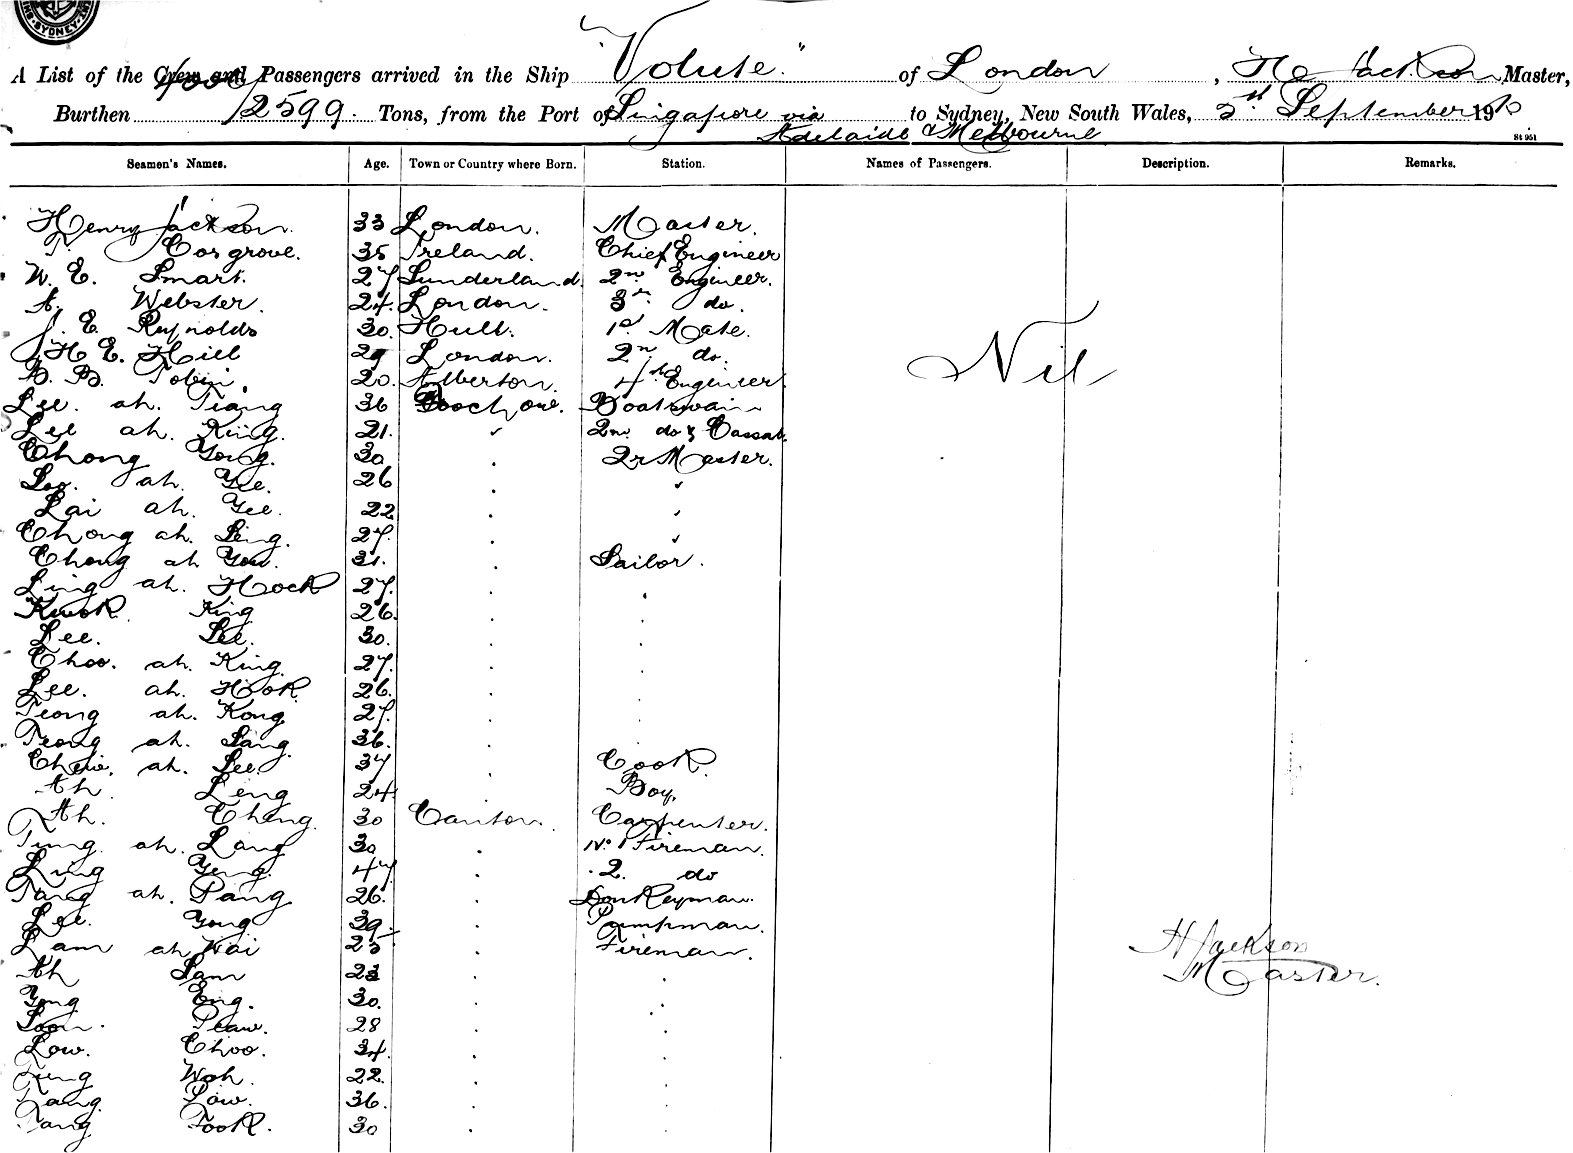 SYDNEY
A List of the Crew and Passengers arrived in the Ship "Volute." of London, H Jackson Master,
Burthen 2599. Tons, from the Port of Singapore via Adelaide & Melbourne to Sydney, New South Wales, 2st September 19
St 951
Seamen's Names. Age. Town or Country where Born. Station. Names of Passengers. Description. Remarks.
Henry Jackson. 33 London. Master.
T. Cosgrove. 35 Ireland. Chief Engineer
W. E. Smart. 27 Sunderland. 2nd Engineer.
A. Webster. 24. London. 3rd do.
J. E. Reynolds 30. Hull. 1st Mate.
H E. Hill 29 London. 2n do.
B. B. Tobin. 20. Alberton. 4th Engineer
Nil
Lee. ah. Tiang 36 Foochow. Boatswain
Lee ah. King. 21. 2nd do & Cassab.
Chong Yong. 30 Qr Master.
Loo. ah. Yee. 26
Lai ah. Yee. 22
Chong ah. Ling. 27.
Chong ah You. 31. Sailor.
Ling ah. Hock 27.
Kwok King 26.
Lee. Lee. 30.
Choo. ah. King. 27.
Lee. ah. Hook. 26.
Teong ah. Kong 27.
Teong ah. Sang. 36.
Chew. ah. Lee. 37 Cook.
Ah Leng 24 Boy.
Ah. Cheng. 30 Canton. Carpenter.
Tung ah. Lang 30 No. 1 Fireman.
Ling Yeng. 47 2. do
Tang ah. Pang. 26. Donkeyman.
Lee. Yong 39 Pumpman.
Lam ah Wai 25 Fireman.
H Jackson
Ah Lam 23
Master.
Yong Eng. 30.
Loon. Peaw. 28
Low. Choo. 34.
Tung Woh. 22.
Tang. Low. 36.
Tang Fook. 30